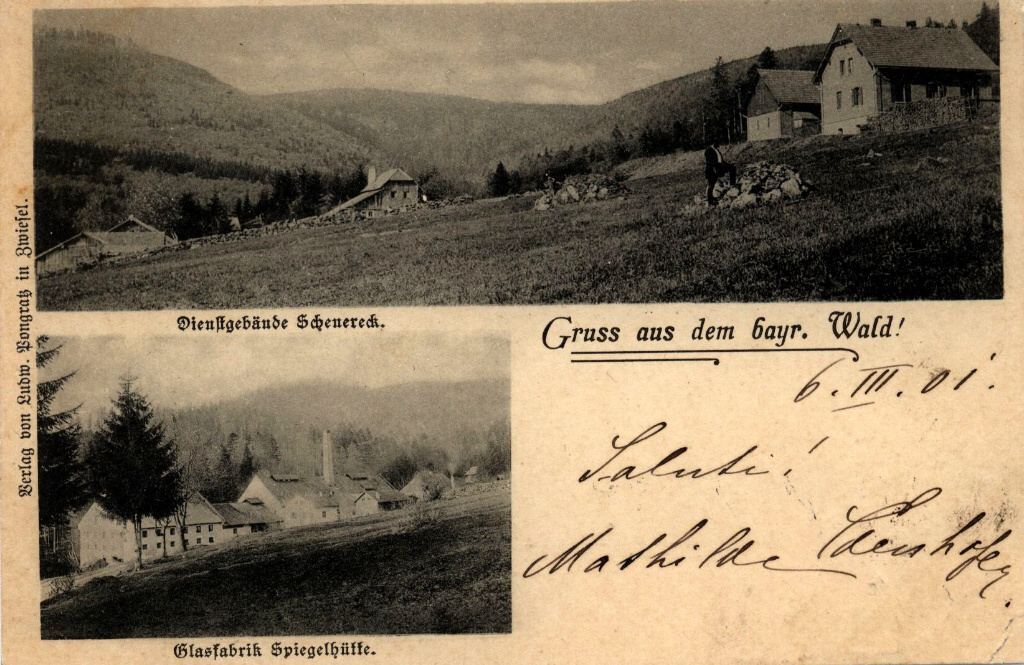 Dienstgebände Schenereck.
Verlag von Ludw. Pongratz in Zwiesel.
Gruss aus dem bayr. Wald!
6. III. 01.
Saluti!
Mathilde
Glasfabrik Spiegelhütte.